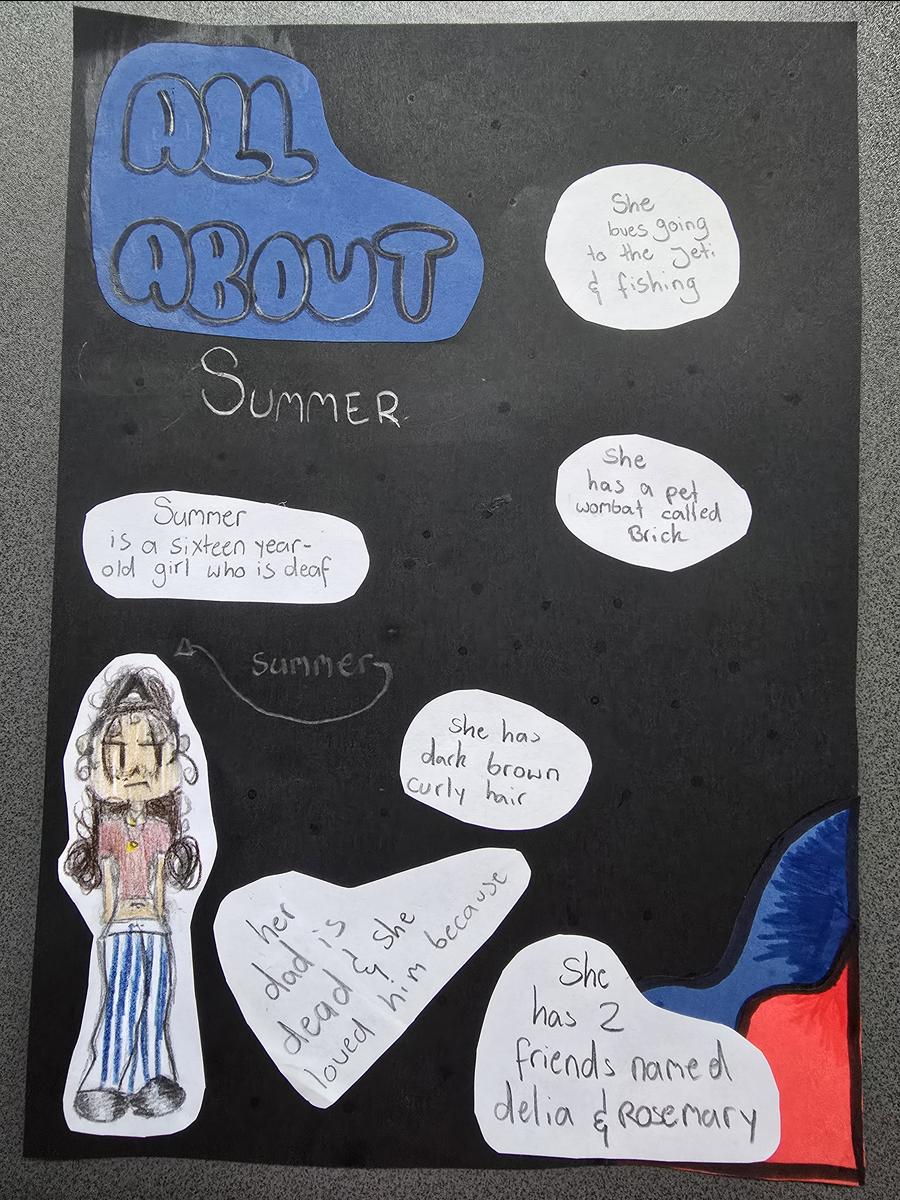 ALL
ABOUT
SUMMER
She
loves going
to the Jeti
& fishing
She
has a pet
wombat called
Brick
Summer
is a sixteen year-
old girl who is deaf
Summer
She has
dark brown
curly hair
her
dad is
dead & she
loved him because
She
has 2
friends named
delia & Rosemary